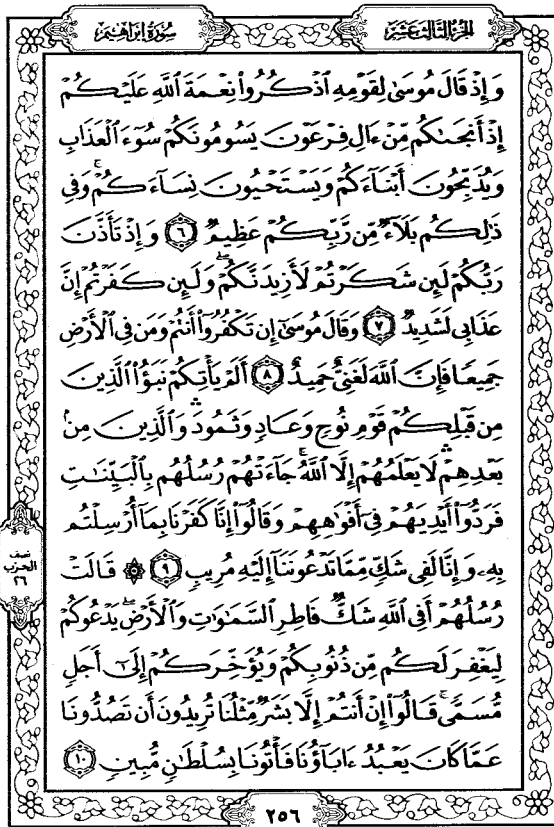 سُورَةُ إِبْرَاهِيمَ
الجُزْءُ الثَّالِثَ عَشَرَ
وَإِذْ قَالَ مُوسَىٰ لِقَوْمِهِ ٱذْكُرُوا۟ نِعْمَةَ ٱللَّهِ عَلَيْكُمْ
إِذْ أَنجَىٰكُم مِّنْ ءَالِ فِرْعَوْنَ يَسُومُونَكُمْ سُوٓءَ ٱلْعَذَابِ
وَيُذَبِّحُونَ أَبْنَآءَكُمْ وَيَسْتَحْيُونَ نِسَآءَكُمْ ۚ وَفِى
ذَٰلِكُم بَلَآءٌ مِّن رَّبِّكُمْ عَظِيمٌ ٦ وَإِذْ تَأَذَّنَ
رَبُّكُمْ لَئِن شَكَرْتُمْ لَأَزِيدَنَّكُمْ ۖ وَلَئِن كَفَرْتُمْ إِنَّ
عَذَابِى لَشَدِيدٌ ٧ وَقَالَ مُوسَىٰٓ إِن تَكْفُرُوٓا۟ أَنتُمْ وَمَن فِى ٱلْأَرْضِ
جَمِيعًا فَإِنَّ ٱللَّهَ لَغَنِىٌّ حَمِيدٌ ٨ أَلَمْ يَأْتِكُمْ نَبَؤُا۟ ٱلَّذِينَ
مِن قَبْلِكُمْ قَوْمِ نُوحٍ وَعَادٍ وَثَمُودَ ۛ وَٱلَّذِينَ مِنۢ
بَعْدِهِمْ ۛ لَا يَعْلَمُهُمْ إِلَّا ٱللَّهُ ۚ جَآءَتْهُمْ رُسُلُهُم بِٱلْبَيِّنَـٰتِ
فَرَدُّوٓا۟ أَيْدِيَهُمْ فِىٓ أَفْوَٰهِهِمْ وَقَالُوٓا۟ إِنَّا كَفَرْنَا بِمَآ أُرْسِلْتُم
بِهِۦ وَإِنَّا لَفِى شَكٍّ مِّمَّا تَدْعُونَنَآ إِلَيْهِ مُرِيبٍ ٩ ۞ قَالَتْ
رُسُلُهُمْ أَفِى ٱللَّهِ شَكٌّ فَاطِرِ ٱلسَّمَـٰوَٰتِ وَٱلْأَرْضِ ۖ يَدْعُوكُمْ
لِيَغْفِرَ لَكُم مِّن ذُنُوبِكُمْ وَيُؤَخِّرَكُمْ إِلَىٰٓ أَجَلٍ
مُّسَمًّى ۚ قَالُوٓا۟ إِنْ أَنتُمْ إِلَّا بَشَرٌ مِّثْلُنَا تُرِيدُونَ أَن تَصُدُّونَا
عَمَّا كَانَ يَعْبُدُ ءَابَآؤُنَا فَأْتُونَا بِسُلْطَـٰنٍ مُّبِينٍ ١٠
نصف
الحزب
٢٦
٢٥٦